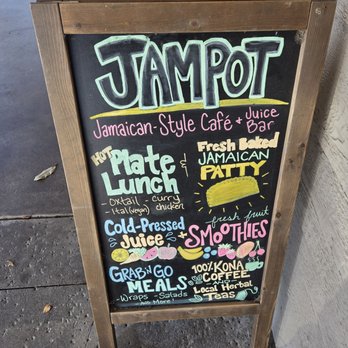 JAMPOT
Jamaican-Style Café + Juice Bar
Hot Plate Lunch
- Oxtail - Curry chicken
- Ital (vegan)
&
Fresh Baked
JAMAICAN
PATTY
Cold-Pressed
Juice
+
fresh fruit
SMOOTHIES
GRAB N GO
MEALS
- Wraps - Salads
And More!
100% KONA
COFFEE
AND
Local Herbal
Teas